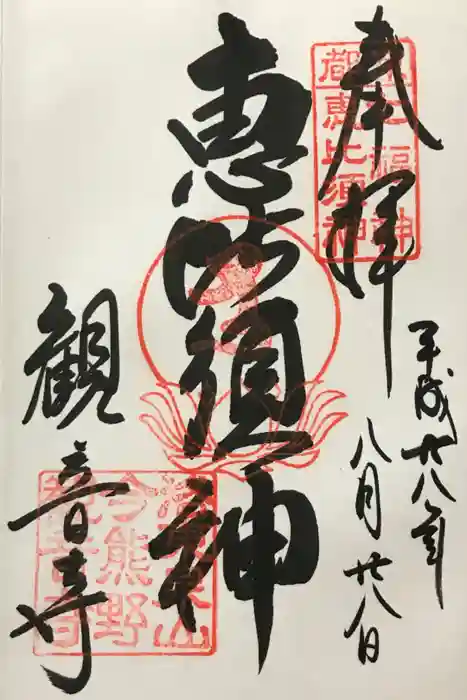 奉拝
平成廿八年
八月廿八日
恵比須神
観音寺
都七福神
恵比須神
今熊野
観音寺